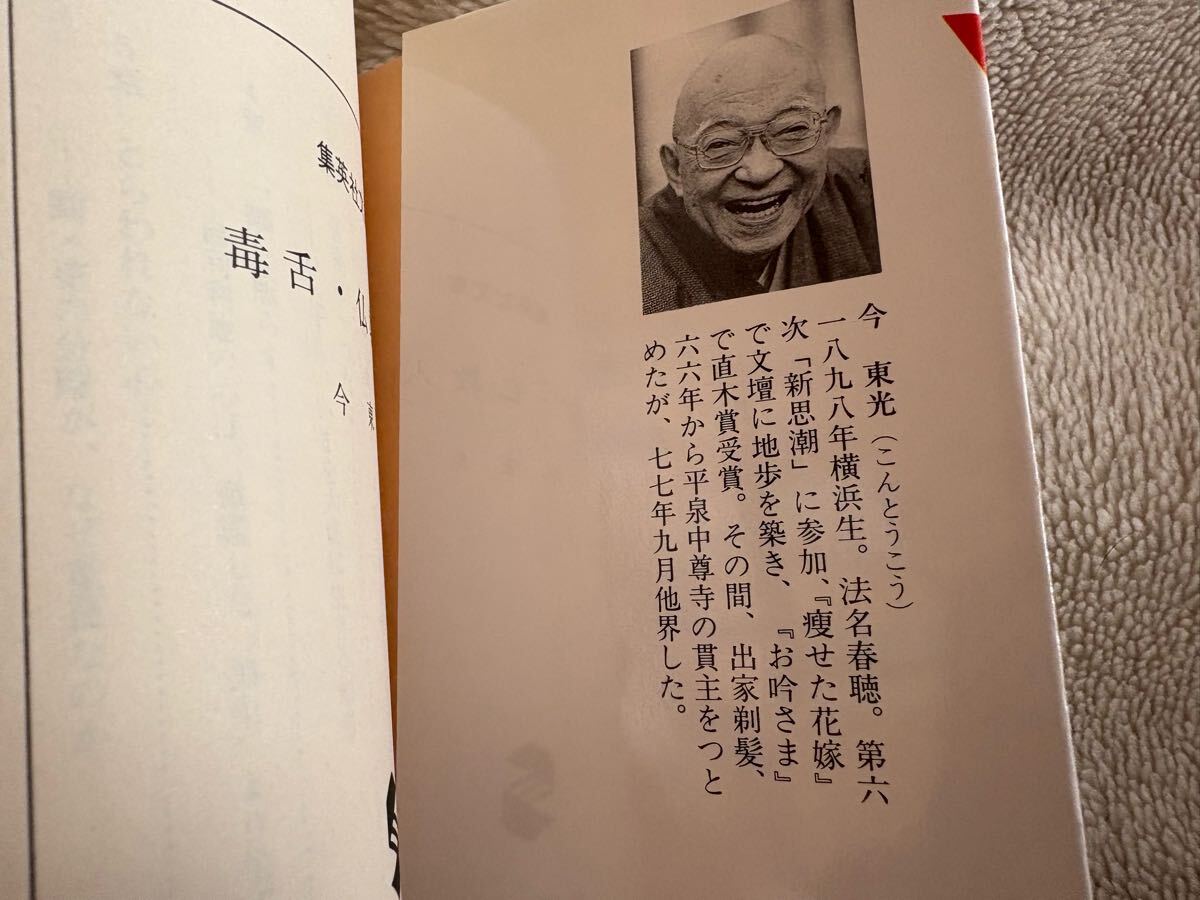 今 東光(こんとうこう)
一八九八年横浜生。法名春聴。第六
次「新思潮」に参加、『瘦せた花嫁』
で文壇に地歩を築き、『お吟さま』
で直木賞受賞。その間、出家剃髪、
六六年から平泉中尊寺の貫主をつと
めたが、七七年九月他界した。
集英社
毒舌・仏
今 東